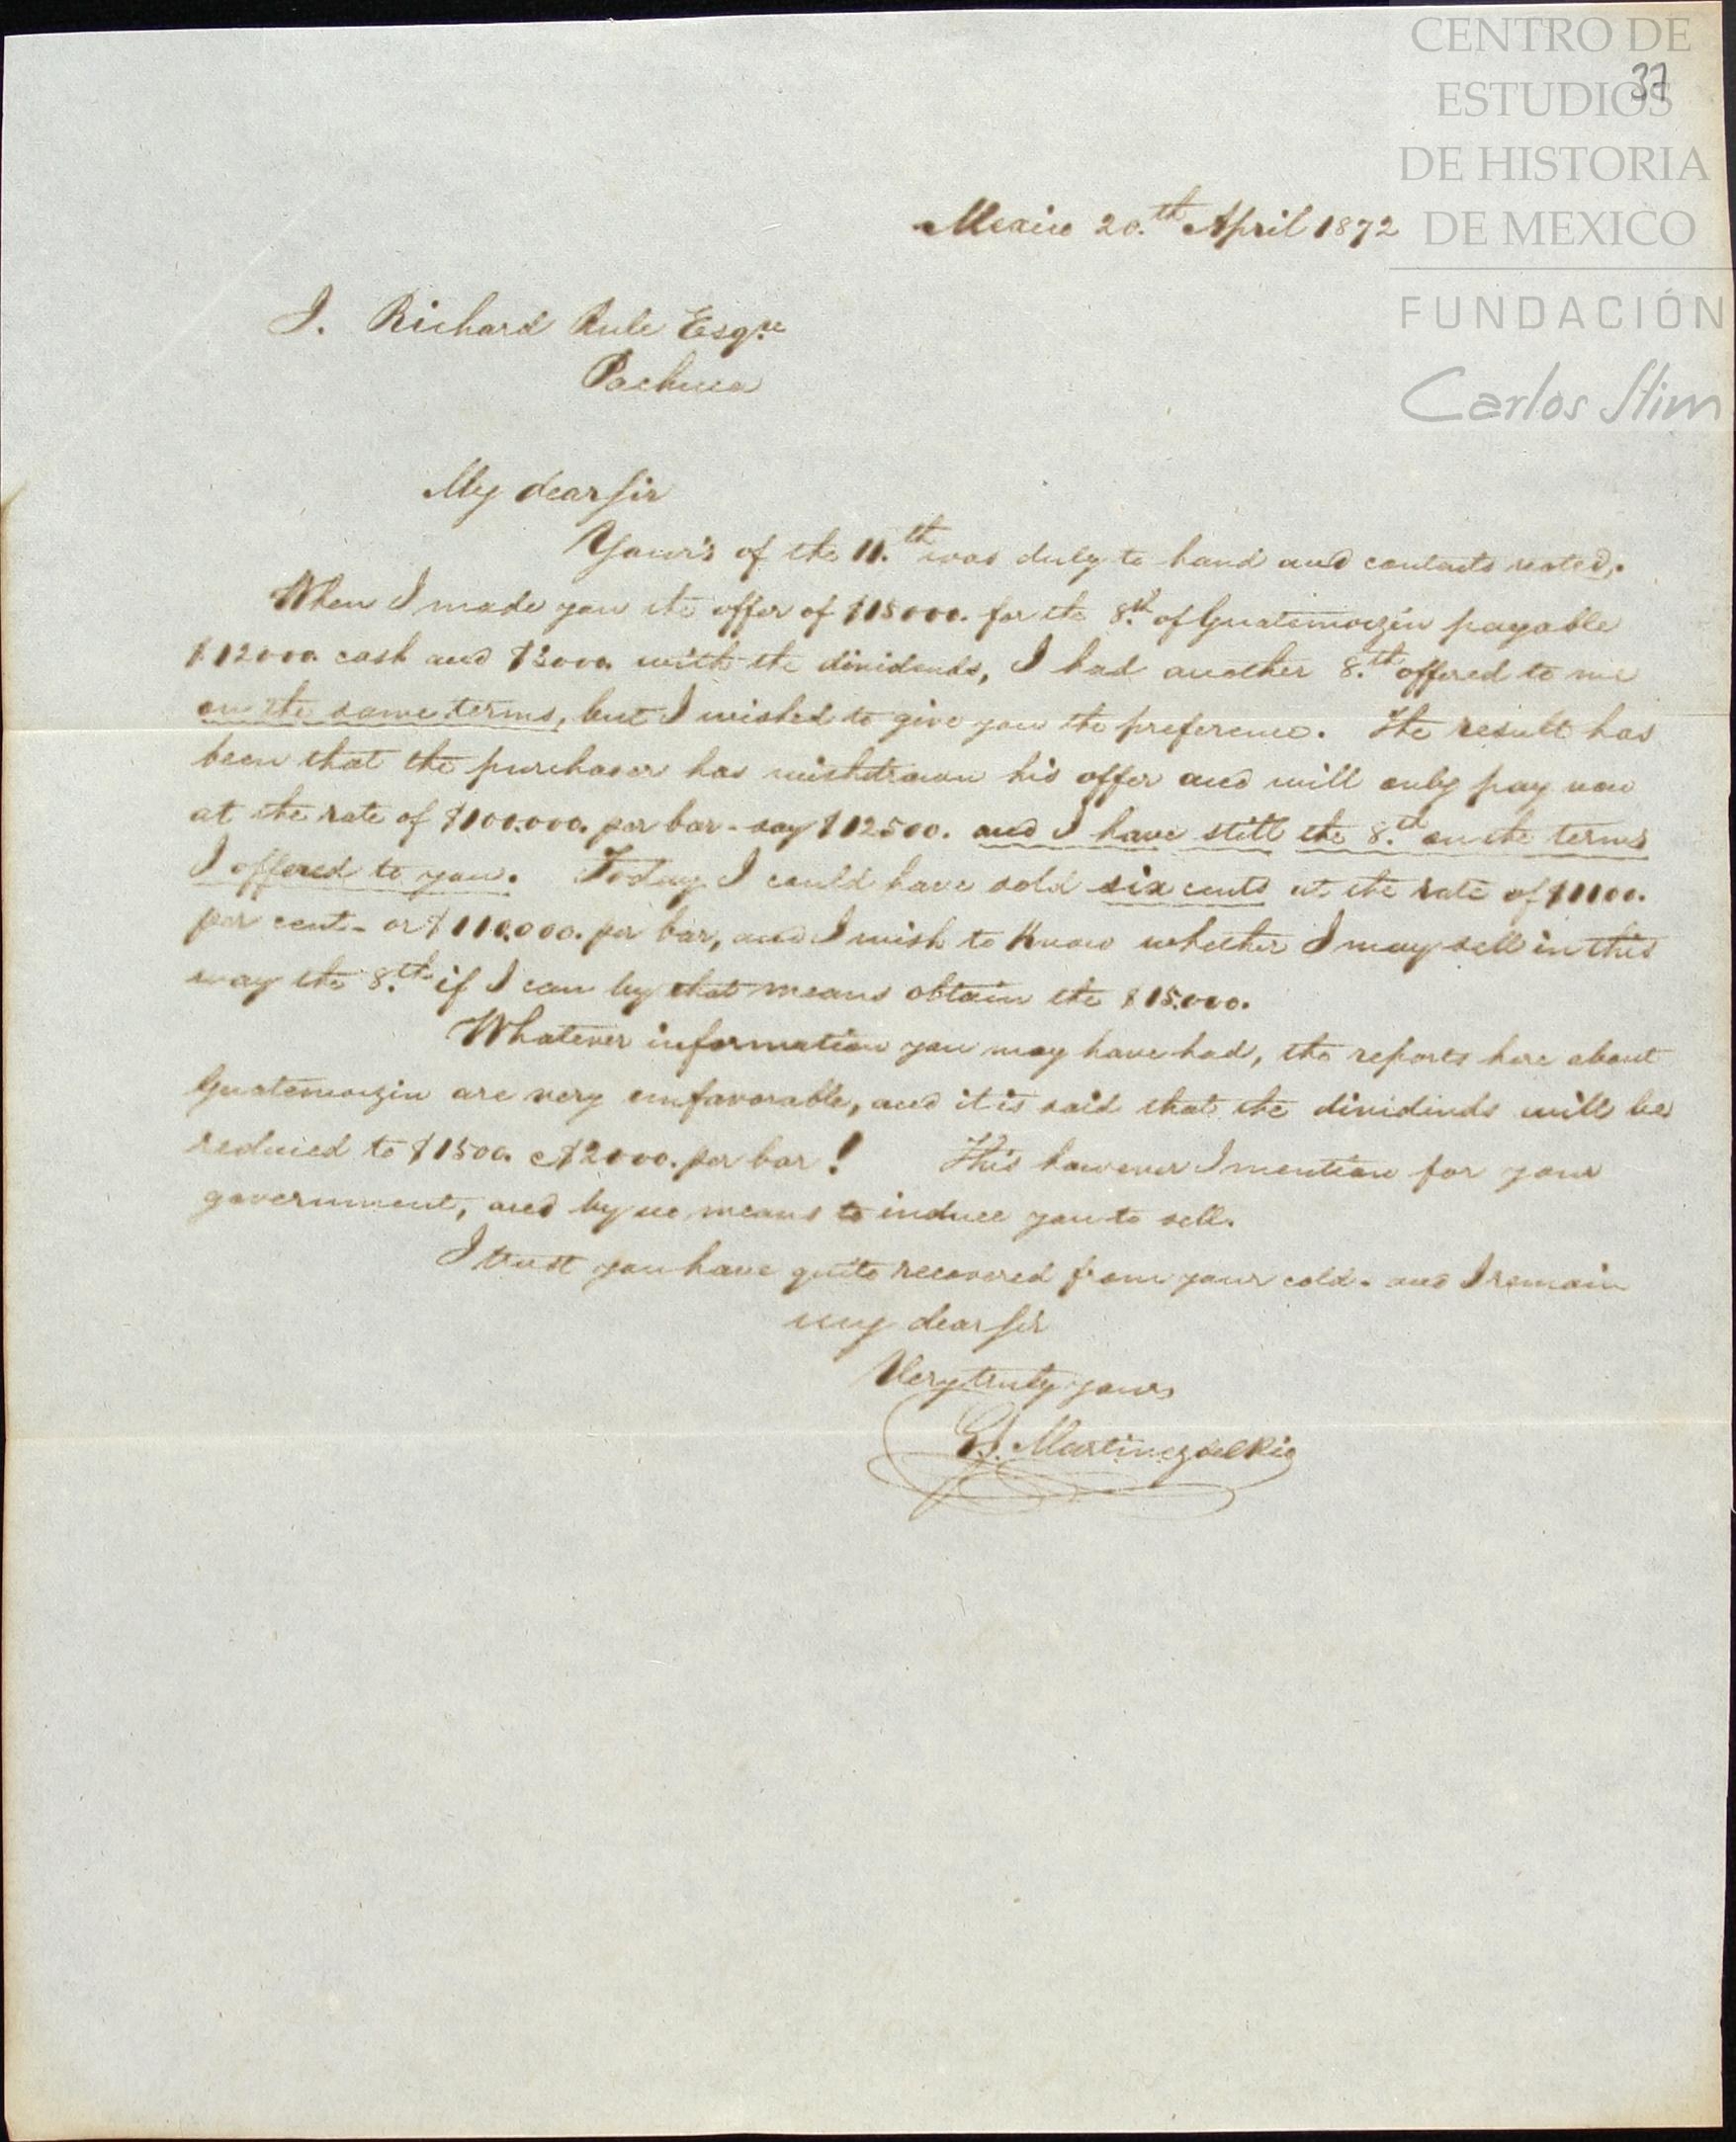 CENTRO DE
ESTUDIOS
37
DE HISTORIA
DE MEXICO
FUNDACIÓN
Carlos Slim
Mexico 20.th April 1872
J. Richard Rule Esqre
Pachuca
My dear Sir
Your's of the 11.th was duly to hand and contents noted.
When I made you the offer of $15000. for the 8.th of Guatimoczin payable
$12000. cash and $3000. with the dividends, I had another 8.th offered to me
on the same terms, but I wished to give you the preference. The result has
been that the purchaser has withdrawn his offer and will only pay now
at the rate of $100.000. per bar - say $12500. and I have still the 8.th on the terms
I offered to you. Today I could have sold six cents at the rate of $1100.
per cent - or $110.000. per bar, and I wish to Know whether I may sell in this
way the 8.th if I can by that means obtain the $15.000.
Whatever information you may have had, the reports here about
Guatemoczin are very unfavorable, and it is said that the dividinds will be
reduced to $1500. @ $2000. per bar! This however I mention for your
government, and by no means to induce you to sell.
I trust you have quite recovered from your cold - and I remain
my dear Sir
Very truly yours
Martinez del Rio